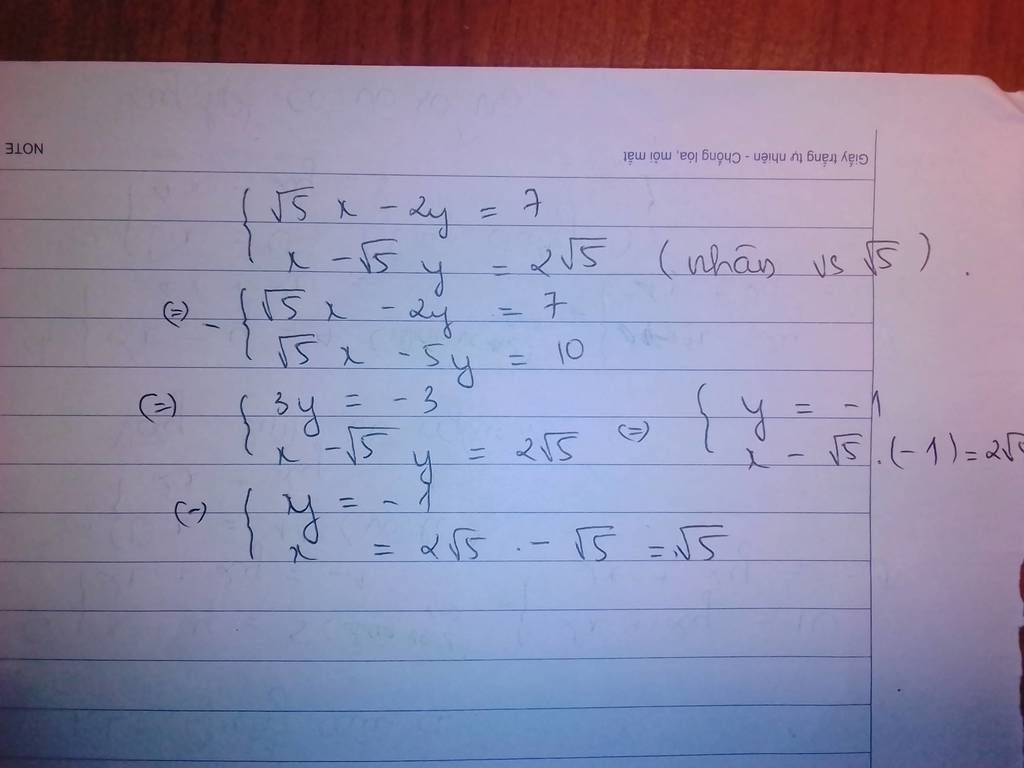 NOTE
Giấy trắng tự nhiên - Chống lóa, mỏi mắt
√5 x - 2y = 7
x - √5 y = 2√5 (nhân vs √5).
(=) - √5 x - 2y = 7
√5 x - 5y = 10
(=) 3y = -3
x - √5 y = 2√5
(=) y = -1
x - √5.(-1) = 2√5
(-) y = -1
x = 2√5 . - √5 = √5